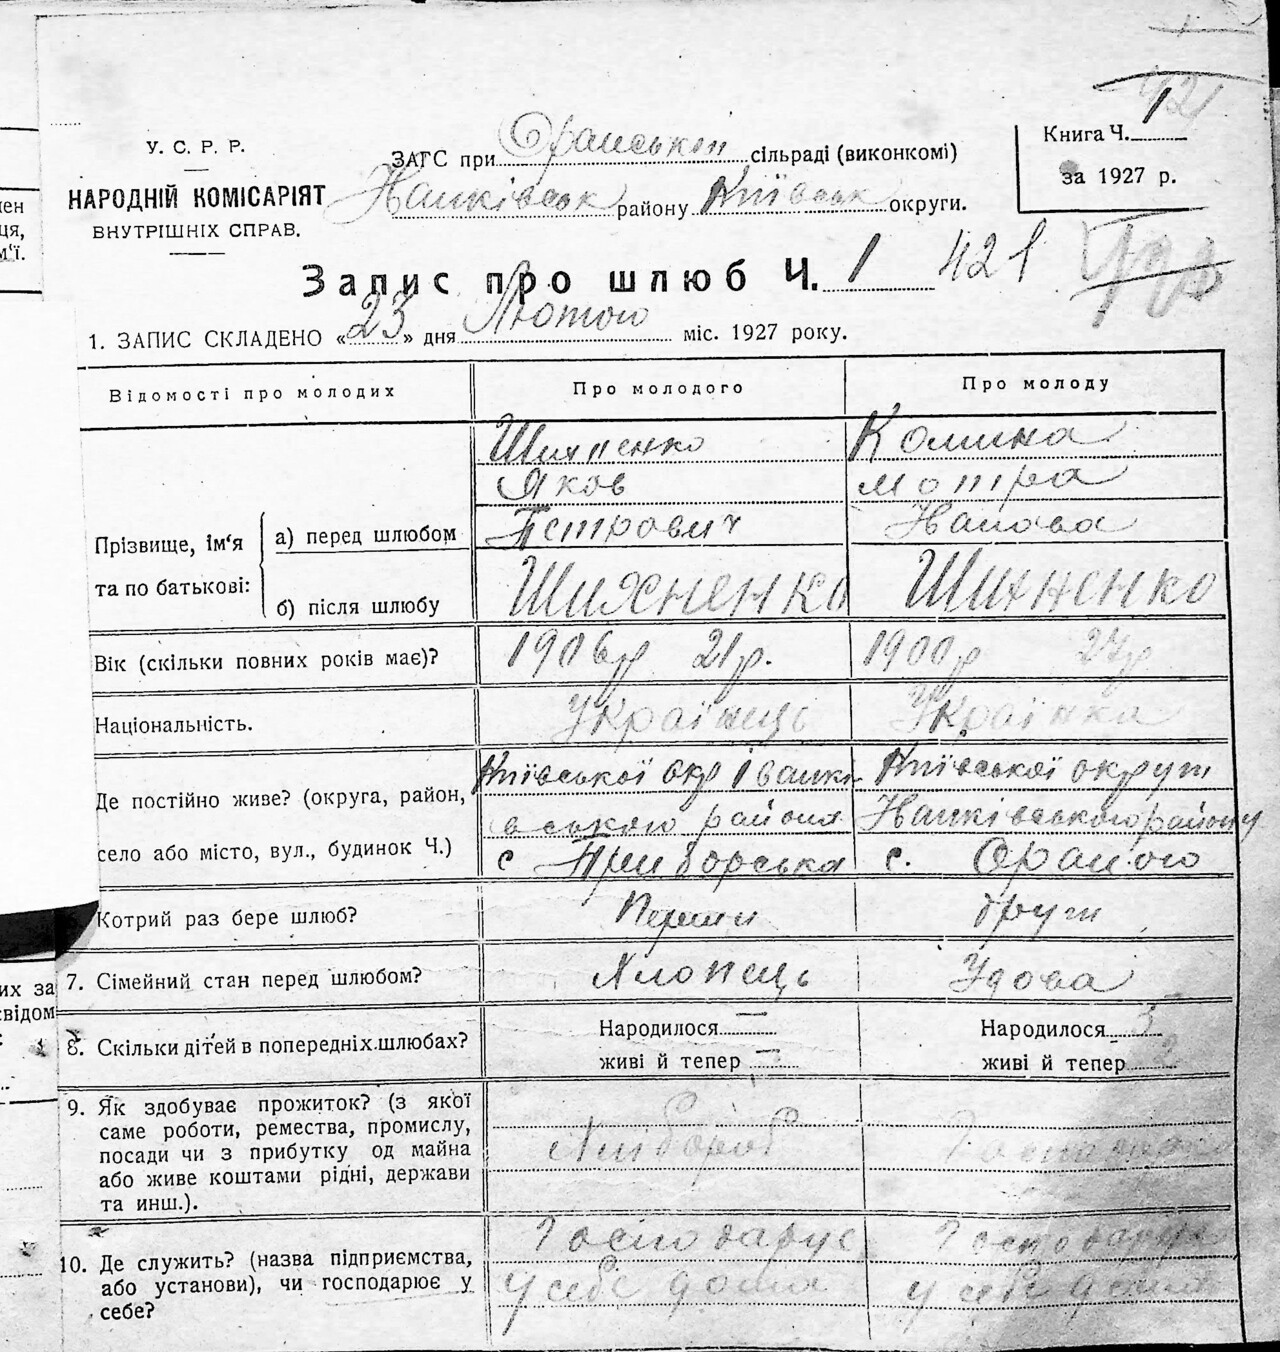 У. С. Р. Р.
НАРОДНІЙ КОМІСАРІЯТ
ВНУТРІШНІХ СПРАВ.
ЗАГС при Оранській сільраді (виконкомі)
району Київськ округи.
Книга Ч. 1
за 1927 р.
Запис про шлюб Ч. 1 421
1. ЗАПИС СКЛАДЕНО «23» дня Лютого міс. 1927 року.
Відомості про молодих
Про молодого
Про молоду
Прізвище, ім‘я та по батькові:
а) перед шлюбом
Яков
Петрович
Мотра
б) після шлюбу
Шихненко
Шихненко
Вік (скільки повних років має)?
1906р 21р.
1900р 27р
Національність.
Українець
Українка
Де постійно живе? (округа, район,
село або місто, вул., будинок Ч.)
Київської окр Іванкі
вського района
с Приборська
Київської округи
району
с.Ораного
Котрий раз бере шлюб?
Перший
другий
7. Сімейний стан перед шлюбом?
Хлопець
Удова
8. Скільки дітей в попередніх шлюбах?
Народилося —
живі й тепер —
Народилося 3
живі й тепер 2
9. Як здобуває прожиток? (з якої
саме роботи, ремества, промислу,
посади чи з прибутку од майна
або живе коштами рідні, держави
та инш.).
Хлібороб
10. Де служить? (назва підприємства,
або установи), чи господарює у
себе?
Господарує
у себе дома
Господарує
у себе дома
мен
ця,
м‘ї.
их за
свідом